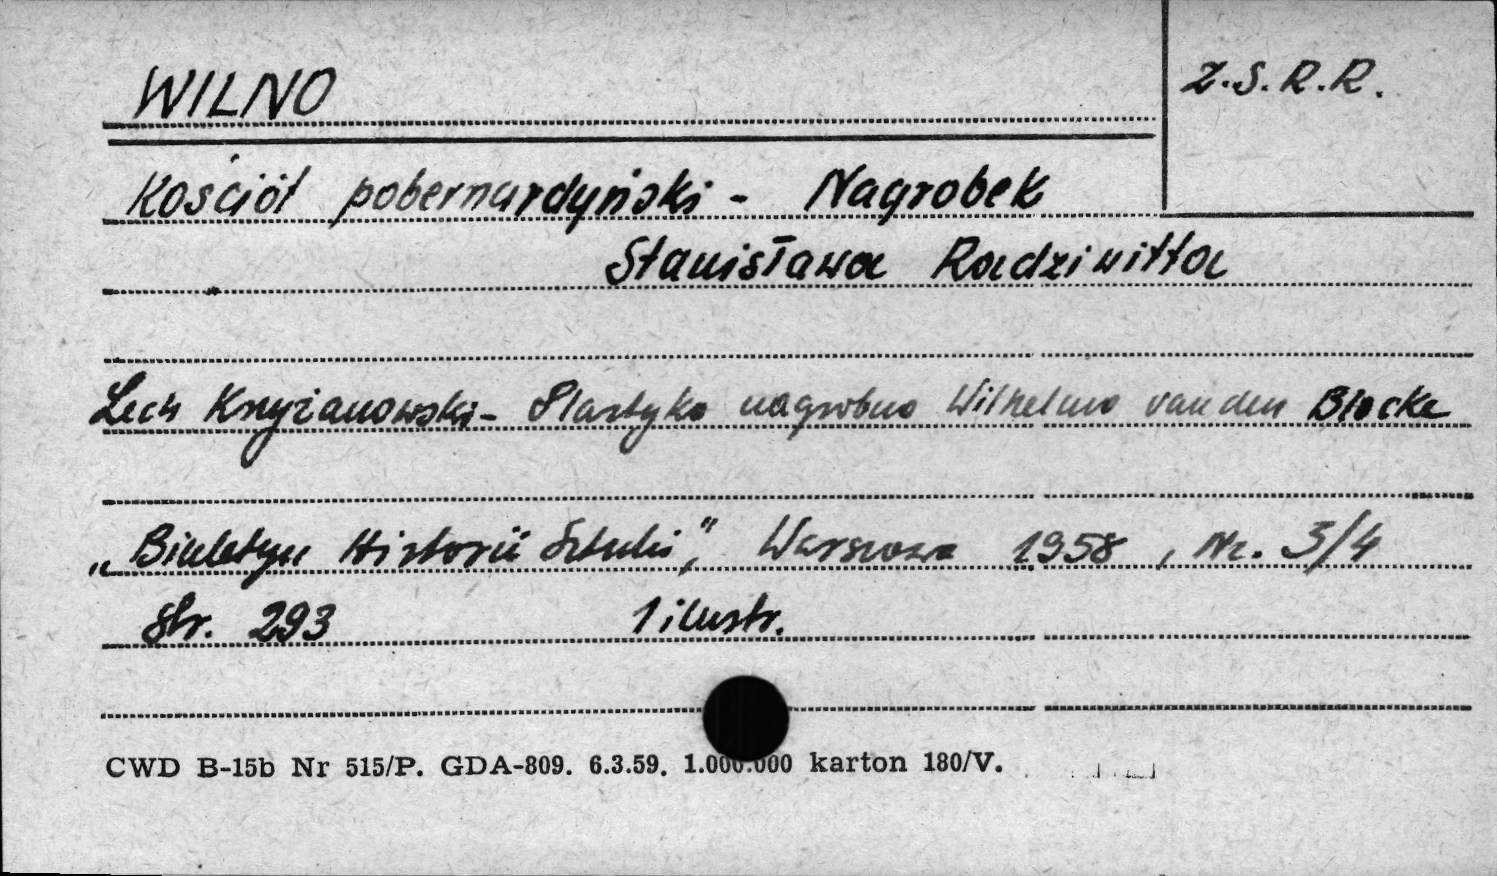 WILNO
Z.S.R.R.
Kościół pobernardyński - Nagrobek
Stanisława Radziwiłła
Lech Krzyżanowski - Plastyka nagrobna Wilhelma van den Blocke
„Biuletyn Historii Sztuki”, Warszawa 1958, Nr. 3/4
Str. 293 1 ilustr.
CWD B-15b Nr 515/P. GDA-809. 6.3.59. 1.000.000 karton 180/V.